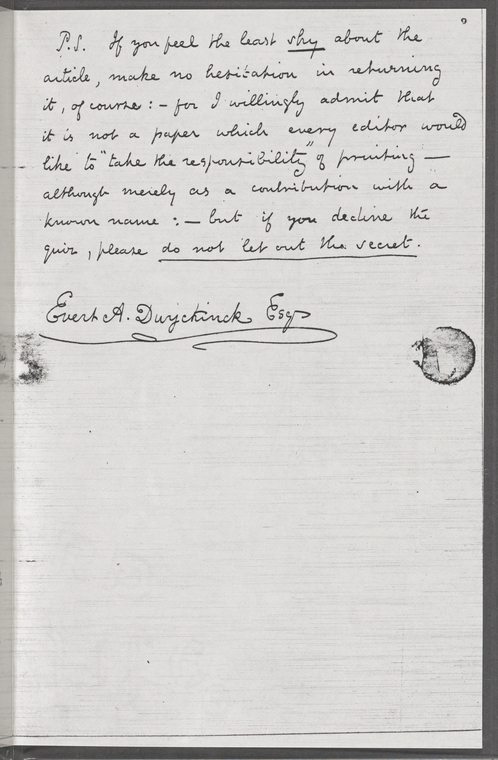 P.S. If you feel the least shy about the
article, make no hesitation in returning
it, of course: — for I willingly admit that
it is not a paper which every editor would
like to "take the responsibility" of printing —
although merely as a contribution with a
known name: — but if you decline the
quiz, please do not let out the secret.
Evert A. Duyckinck Esq